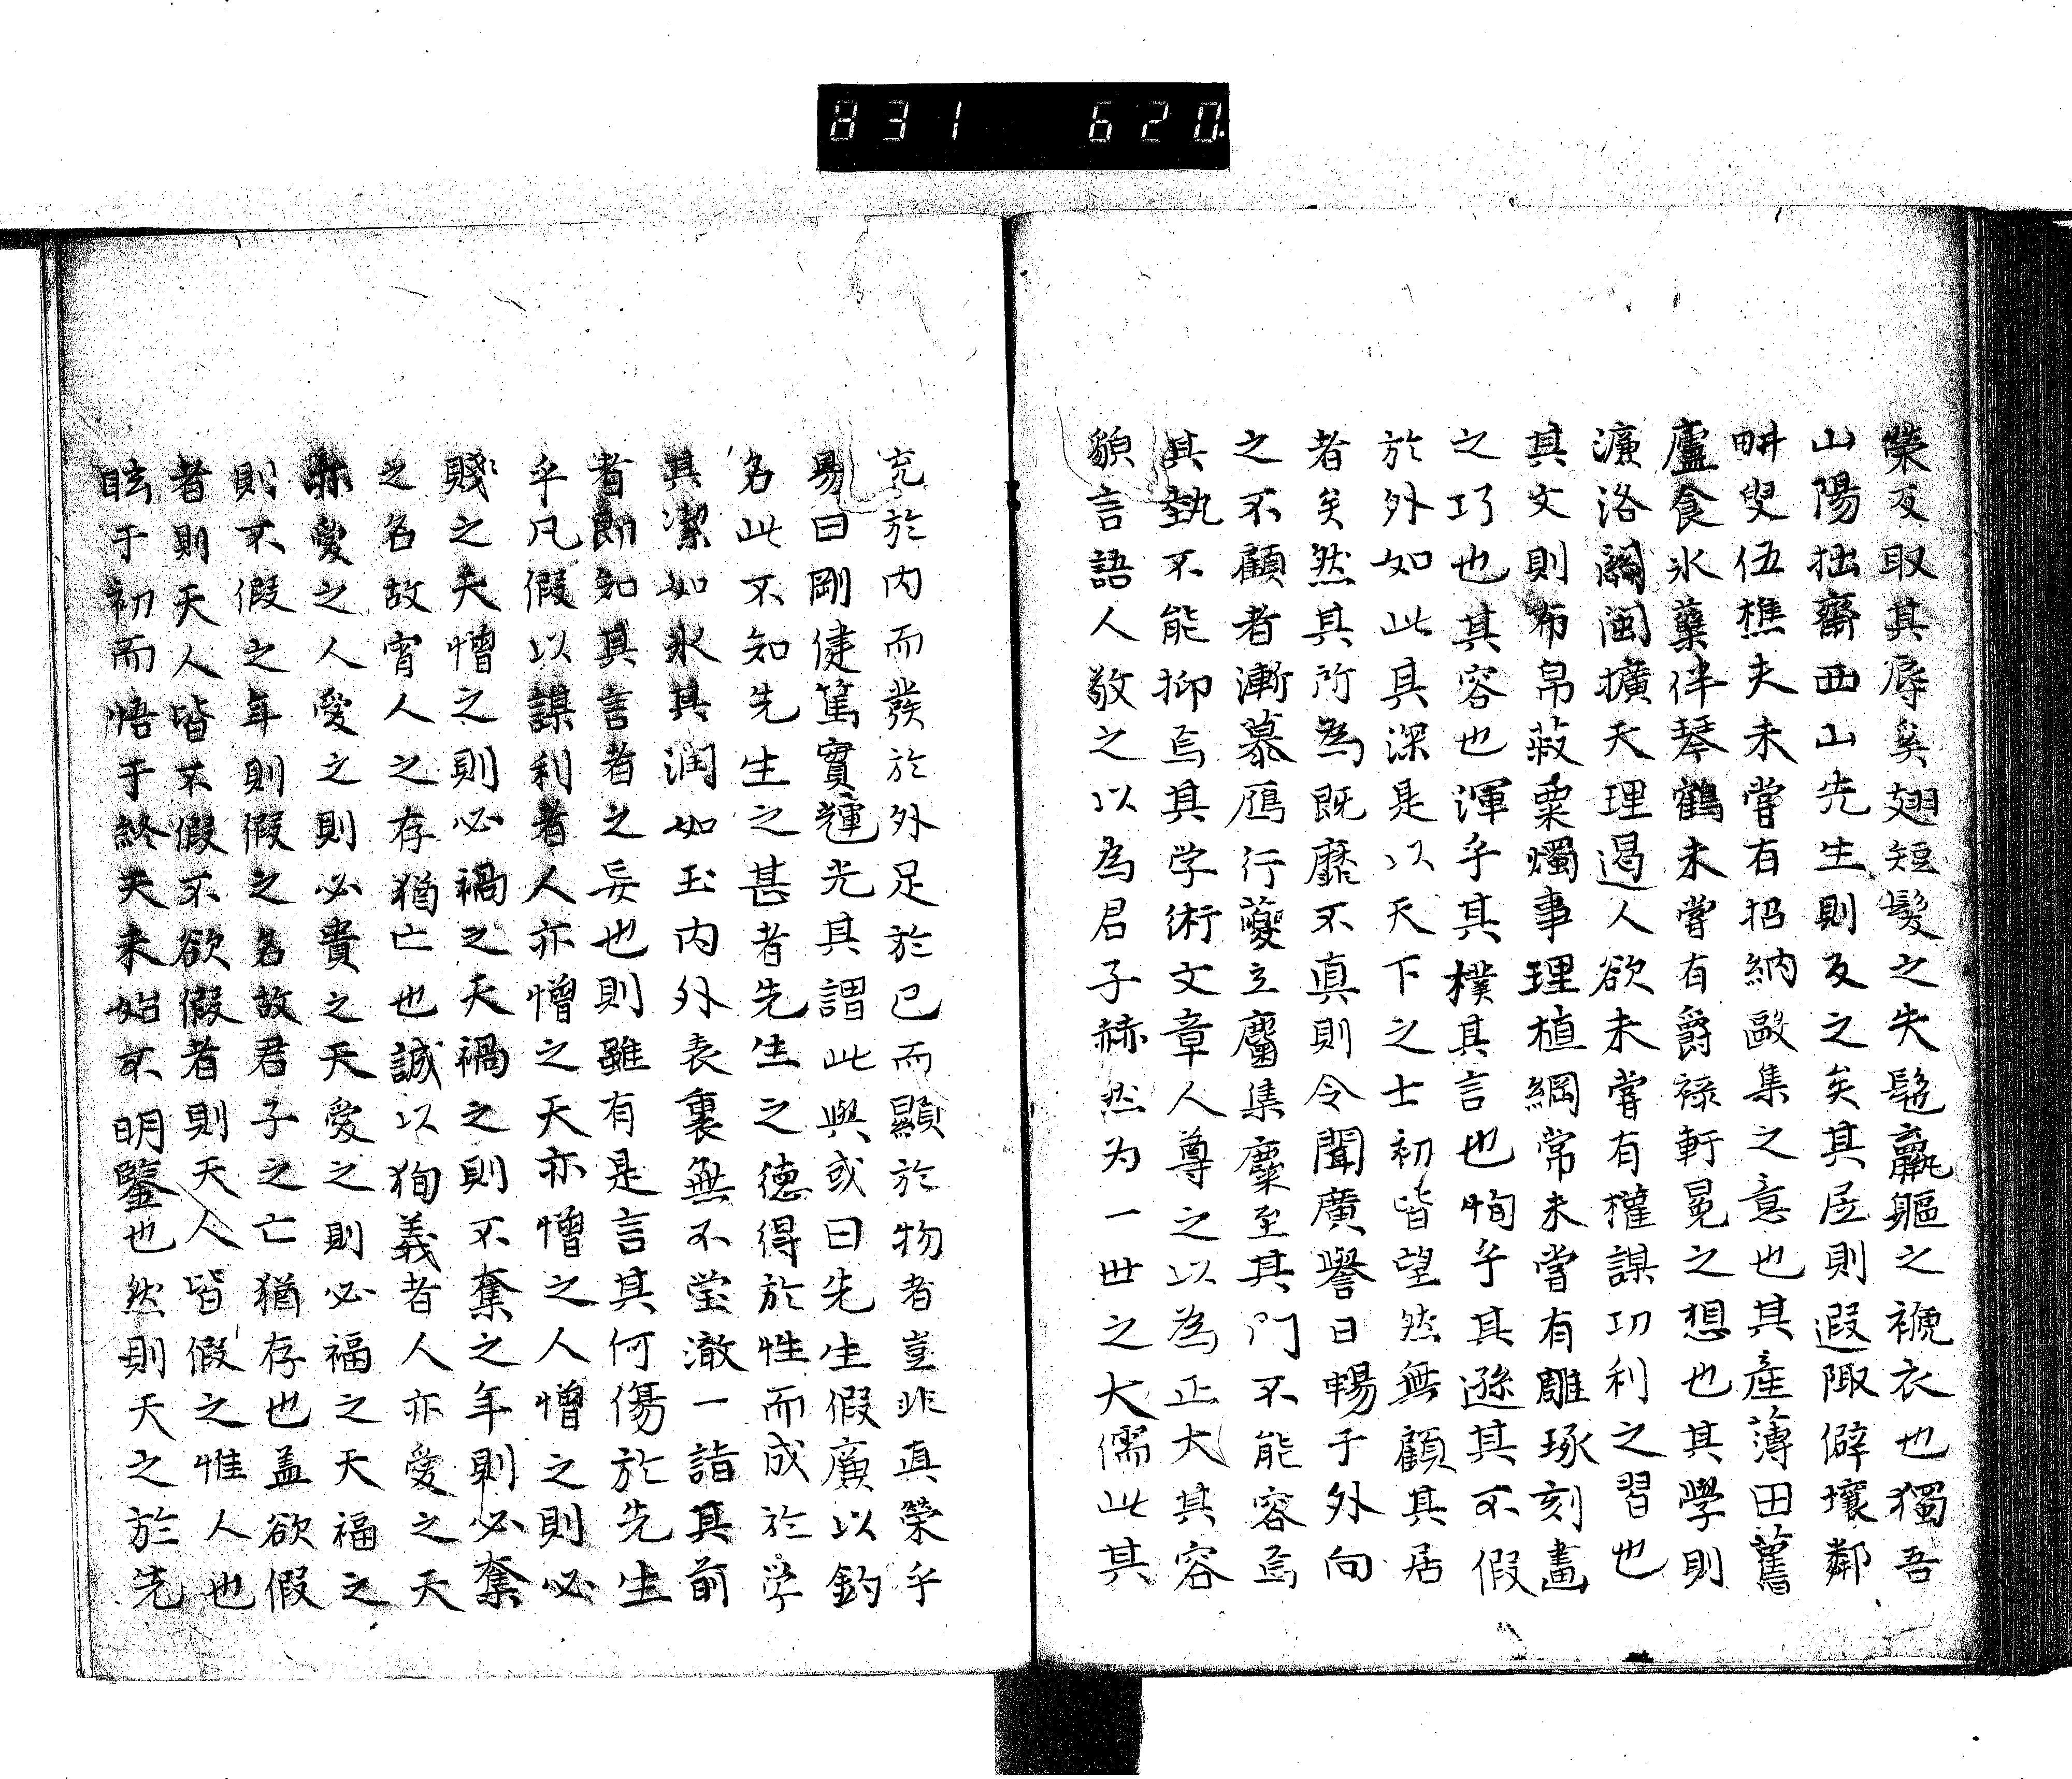 831 620.
榮反取其辱矣翅短髮之失髢羸軀之褫衣也獨吾
山陽拙齋西山先生則反之矣其居則遐陬僻壤鄰
畊叟伍樵夫未嘗有招納敺集之意也其產薄田篤
廬食氷蘖伴琴鶴未嘗有爵祿軒冕之想也其學則
濂洛關閩擴天理遏人欲未嘗有權謀功利之習也
其文則布帛菽粟燭事理植綱常未嘗有雕琢刻畫
之巧也其容也渾乎其樸其言也恂乎其遜其不假
於外如此具深是以天下之士初皆望然無顧其居
者矣然其所為既靡不真則令聞廣譽日暢于外向
之不顧者漸慕鴈行蘷立麕集麇至其門不能容焉
其埶不能抑焉其学術文章人尊之以為正大其容
貌言語人敬之以為君子赫然为一世之大儒此其
充於内而發於外足於己而顯於物者豈非真榮乎
易曰剛健篤實輝光其謂此與或曰先生假廣以釣
名此不知先生之甚者先生之德得於性而成於学
其潔如氷其潤如玉内外表裏無不瑩澈一詣其前
者即知其言者之妄也則雖有是言其何傷於先生
乎凡假以謀利者人亦憎之天亦憎之人憎之則必
賤之天憎之則必禍之天禍之則不奪之年則必奪
之名故宵人之存猶亡也誠以狥義者人亦愛之天
亦愛之人愛之則必貴之天愛之則必福之天福之
則不假之年則假之名故君子之亡猶存也盖欲假
者則天人皆不假不欲假者則天人皆假之惟人也
眩于初而悟于終天未始不明鑒也然則天之於先